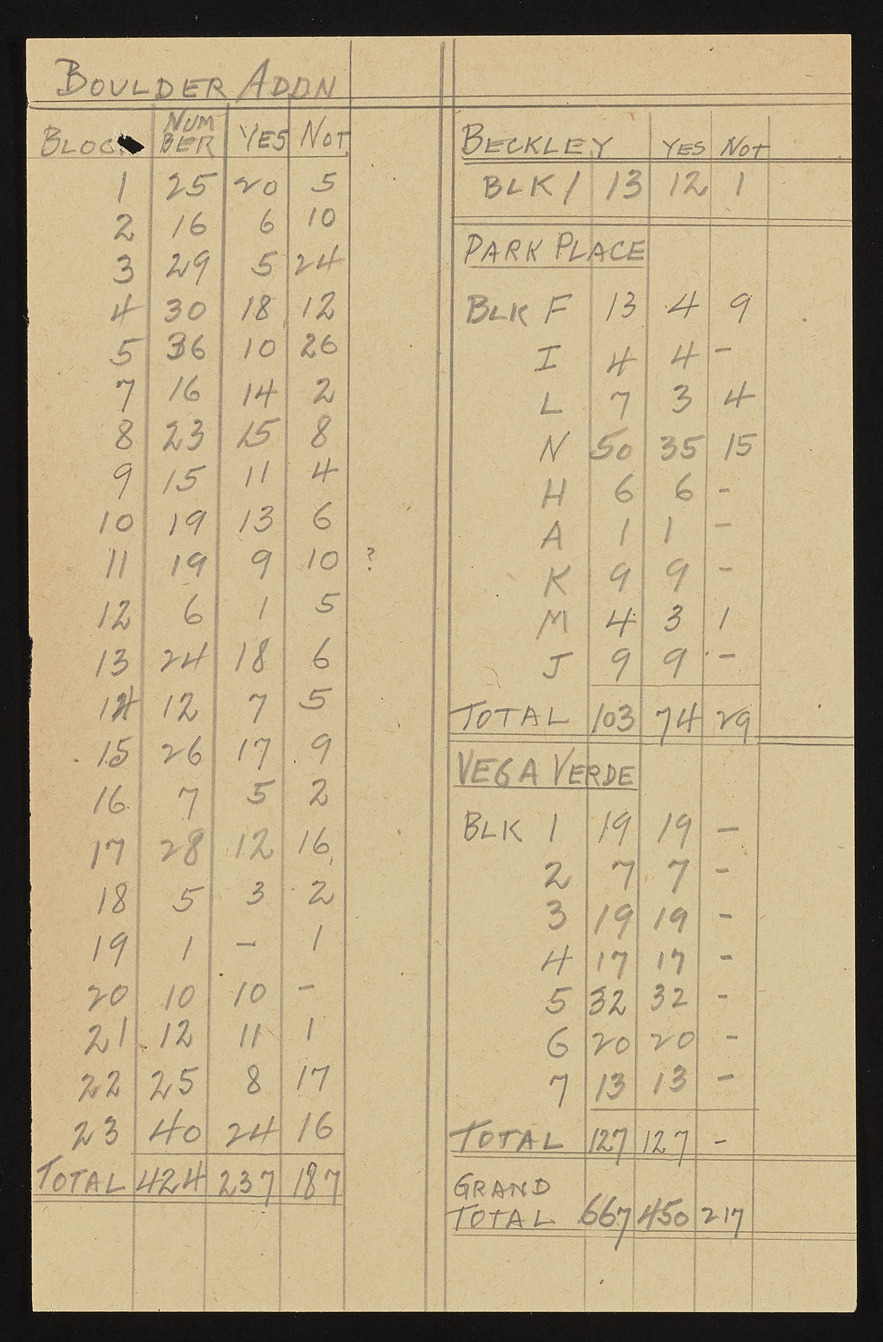 BOULDER ADDN
BLOCK NUMBER YES NOT
1 25 20 5
2 16 6 10
3 29 5 24
4 30 18 12
5 36 10 26
7 16 14 2
8 23 15 8
9 15 11 4
10 19 13 6
11 19 9 10 ?
12 6 1 5
13 24 18 6
14 12 7 5
15 26 17 9
16 7 5 2
17 28 12 16
18 5 3 2
19 1 - 1
20 10 10 -
21 12 11 1
22 25 8 17
23 40 24 16
TOTAL 424 237 187
BECKLEY YES NOT
BLK 1 13 12 1
PARK PLACE
BLK F 13 4 9
I 4 4 -
L 7 3 4
N 50 35 15
H 6 6 -
A 1 1 -
K 9 9 -
M 4 3 1
J 9 9 -
TOTAL 103 74 29
VEGA VERDE
BLK 1 19 19 -
2 7 7 -
3 19 19 -
4 17 17 -
5 32 32 -
6 20 20 -
7 13 13 -
TOTAL 127 127 -
GRAND
TOTAL 667 450 217